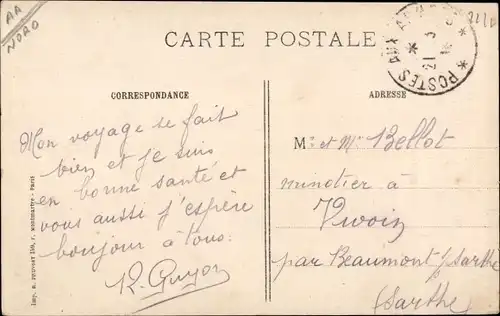 AR
NORD
CARTE POSTALE
POSTES AUX ARMÉES
21 3
CORRESPONDANCE
ADRESSE
Mon voyage se fait
bien et je suis
en bonne santé et
vous aussi j'espère
bonjour à tous.
R. Guyon
Mr et Me Bellot
minotier à
Vivoin
par Beaumont s/ Sarthe
(Sarthe)
Imp. E. PRUVOST 159, r. Montmartre - Paris